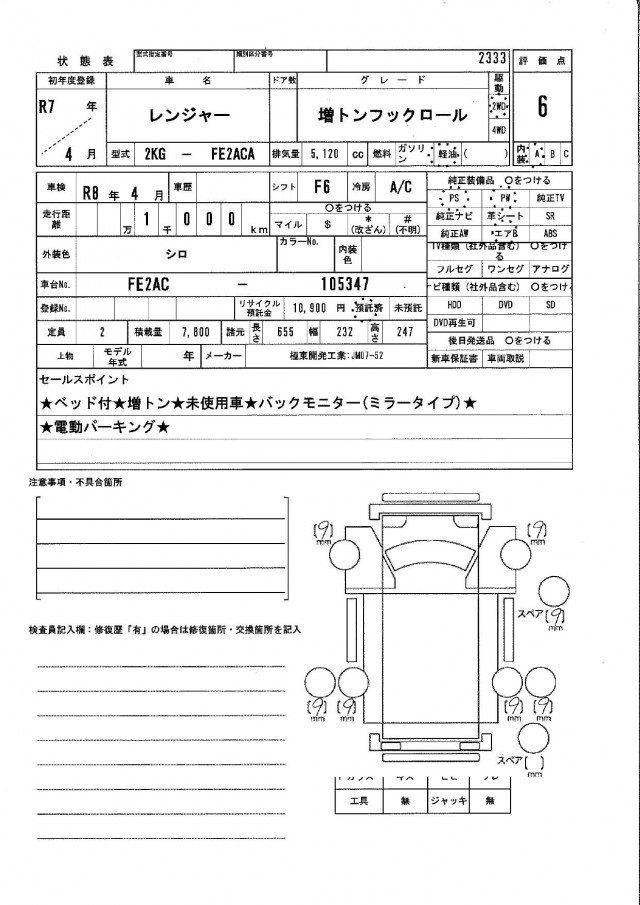 状態表 型式指定番号 類別区分番号 2333 評価点
初年度登録 車名 ドア数 グレード 駆動
R7 年 レンジャー 増トンフックロール 2WD 6
4WD
4 月 型式 2KG － FE2ACA 排気量 5,120 cc 燃料 ガソリン 軽油 ( ) 内装 A B C
車検 R8 年 4 月 車歴 シフト F6 冷房 A/C 純正装備品 〇をつける
PS PW 純正TV
走行距離 万 1 千 0 0 0 km 〇をつける 純正ナビ 革シート SR
マイル $ * (改ざん) # (不明) 純正AW エアB ABS
外装色 シロ カラーNo. 内装色 TV種類（社外品含む）〇をつける
フルセグ ワンセグ アナログ
車台No. FE2AC － 105347 ナビ種類（社外品含む）〇をつける
登録No. リサイクル預託金 10,900 円 預託済 未預託 HDD DVD SD
DVD再生可
定員 2 積載量 7,800 諸元 長さ 655 幅 232 高さ 247 後日発送品 〇をつける
上物 モデル年式 年 メーカー 極東開発工業:JM07-52 新車保証書 車両取説
セールスポイント
★ベッド付★増トン★未使用車★バックモニター(ミラータイプ)★
★電動パーキング★
注意事項・不具合箇所
[9] mm [9] mm
スペア [9] mm
検査員記入欄：修復歴「有」の場合は修復箇所・交換箇所を記入
[9] mm [9] mm [9] mm [9] mm
スペア [ ] mm
工具 無 ジャッキ 無